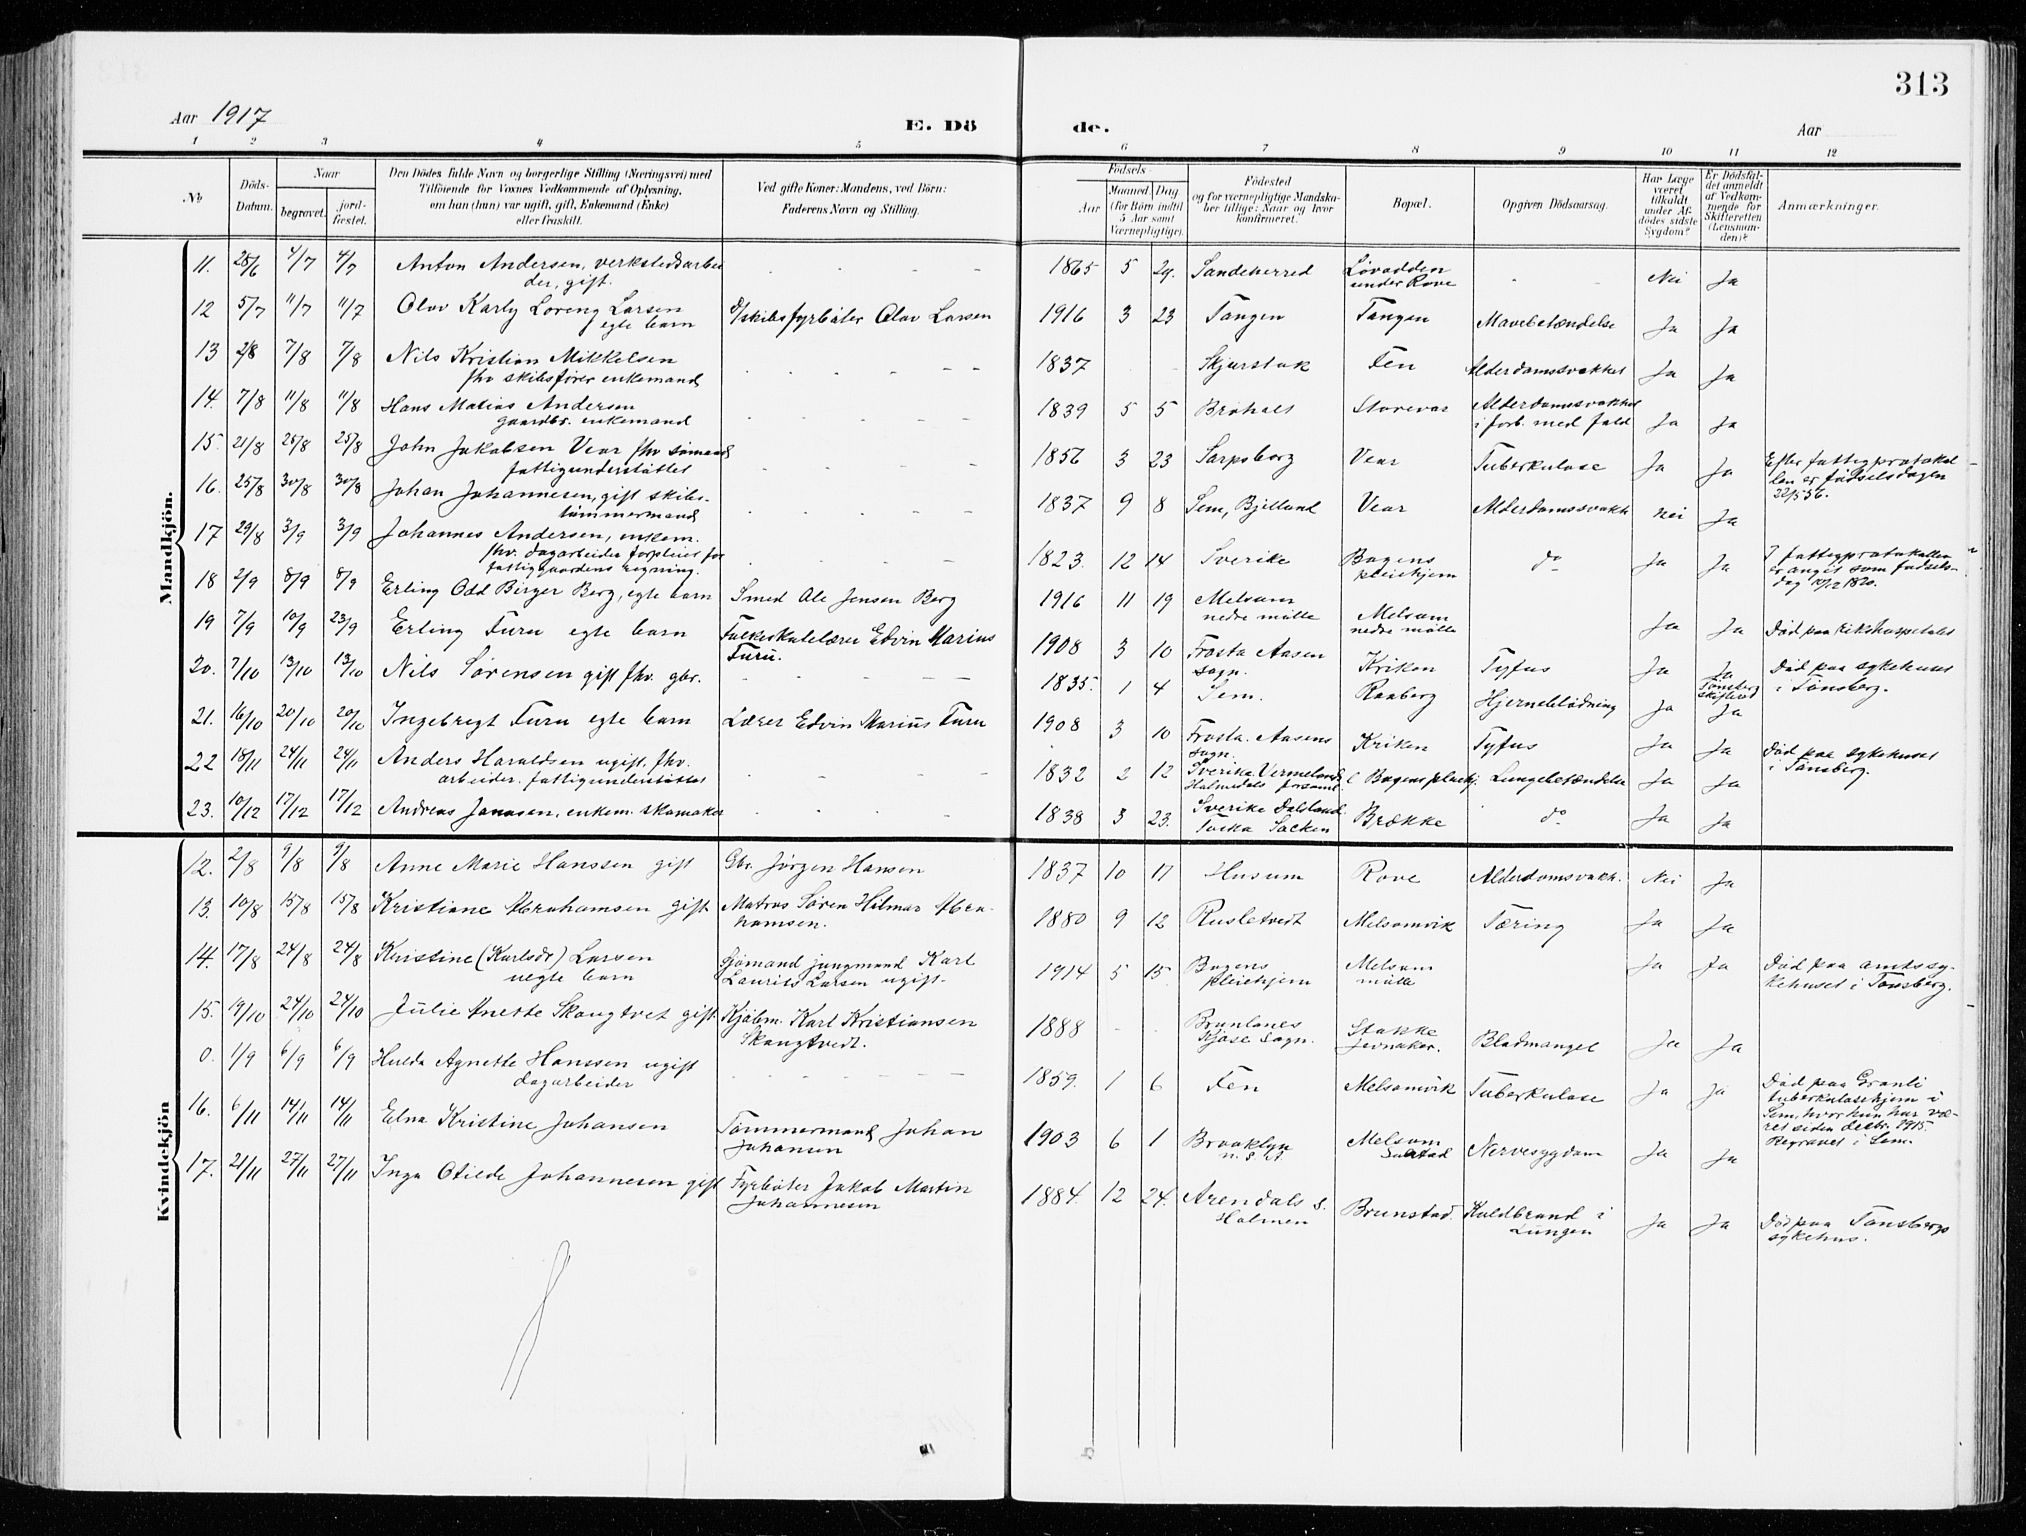 313
Aar 1917
E. Dö
de.
Aar
1 2 3 3 4 5 6 7 8 9 10 11 12
No
Döds-Datum.
Naar
begravet.
jord-fæstet.
Den Dödes fulde Navn og borgerlige Stilling (Næringsvei) med
Tilföiende for Voxnes Vedkommende af Oplysning,
om han (hun) var ugift, gift, Enkemand (Enke)
eller fraskilt.
Ved gifte Koner: Mandens, ved Börn:
Faderens Navn og Stilling.
Födsels-
Aar
Maaned. Dag.
(for Börn indtil
5 Aar samt
Værnepligtige).
Födested
og for værnepligtige Mandska-
ber tillige: Naar og hvor
konfirmeret.
Bopæl.
Opgiven Dödsaarsag.
Har Læge
været
tilkaldt
under Af-
dödes sidste
Sygdom?
Er Dödsfal-
det anmeldt
af Vedkom-
mende for
Skifteretten
(Lensman-
den)?
Anmærkninger.
Mandkjön.
11. 28/6 4/7 4/7 Anton Andersen, verkstedsarbei
der, gift. 1865 5 29. Sandeherred Løvodden
under Rove Nei Ja
12 5/7 11/7 11/7 Olav Karly Loreng Larsen
egte barn d/skibsfyrbøter Olav Larsen 1916 3 23 Tangen Tangen Mavebetændelse Ja Ja
13 2/8 7/8 7/8 Nils Kristian Mikkelsen
fhv skibsfører enkemand 1837 Fen Alderdomssvakhet Ja Ja
14. 7/8 11/8 11/8 Hans Matias Andersen
gaardbr. enkemand 1839 5 5 Storevar Alderdomssvakhet
i forb. med fald Ja Ja
15. 21/8 25/8 25/8 John Jakobsen Vear fhv sømand
fattigunderstøttet 1856 3 23 Sarpsborg Vear Tuberkulose Ja Ja Efter fattigprotokol-
len er fødselsdagen
22/5 56.
16. 25/8 30/8 30/8 Johan Johannesen, gift skibs-
tømmermand 1837 9 8 Sem, Bjelland Vear Alderdomssvakh Nei Ja
17 29/8 3/9 3/9 Johannes Andersen, enkem.
fhv. dagarbeider forpleiet for
fattiggaardens regning. 1823. 12 14 Sverike Bogens
pleiehjem do Ja Ja I fattigprotokollen
er angit som fødsels-
dag 10/12 1820.
18 2/9 8/9 8/9 Erling Odd Birger Berg, egte barn Smed Ole Jensen Berg 1916 11 19 Melsom
nedre mølle Melsom
nedre mølle Ja Ja Død paa Rikshospitalet
19 7/9 10/9 23/9 Erling Furu egte barn Folkeskolelærer Edvin Marius
Furu. 1908 3 10 Frosta Aasen
sogn. Kriken Tyfus Ja Ja
Tønsberg
skifteret Død paa sykehuset
i Tønsberg.
20. 7/10 13/10 13/10 Nils Sørensen gift fhv. gbr. 1835. 1 4 Sem. Raaberg Hjerneblødning Ja Ja
21. 16/10 20/10 20/10 Ingebregt Furu egte barn Lærer Edvin Marius Furu 1908 3 10 Frosta. Aasens
sogn. Kriken Tyfus Ja Ja Død paa sykehuset
i Tønsberg.
22 18/11 24/11 24/11 Anders Haraldsen ugift. fhv.
arbeider. fattigunderstøttet 1832 2 12 Sverike Vermeland
Holmedals forsaml. Bogens pleiehj. Lungebetændelse Ja Ja
23. 10/12 17/12 17/12 Andreas Jonasen, enkem. skomaker 1838 3 23. Sverike Dalsland
Brække do Ja Ja
Kvindekjön
12. 2/8 9/8 9/8 Anne Marie Hanssen gift Gbr. Jørgen Hansen 1837 10 17 Husum Rove Alderdomsvakh. Nei Ja
13. 10/8 15/8 15/8 Kristiane Abrahamsen gift Matros Søren Hilmar Abra-
hamsen. 1880 9 12 Rusletvedt Melsomvik Tæring Ja Ja
14. 17/8 24/8 24/8 Kristine (Karlsdr) Larsen
uegte barn Sjømand jungmand Karl
Laurits Larsen ugift. 1914 5 15 Bogens
pleiehjem Melsom
mølle Ja Ja Død paa amtssy-
kehuset i Tønsberg.
15. 19/10 24/10 24/10 Julie Anette Skaugtvet gift Kjøbm. Karl Kristiansen
Skaugtvedt. 1888 Brunlanes
Kjose Sogn. Stokke
Jernaker. Blodmangel Ja Ja
0. 1/9 6/9 6/9 Hulda Agnette Hanssen ugift
dagarbeider 1859. 1 6 Fen Melsomvik Tuberkulose Ja Ja Død paa Granli
tuberkulosehjem i
Sem, hvor hun har væ-
ret siden decbr. 1915.
Begravet i Sem.
16. 6/11 14/11 14/11 Edna Kristine Johansen Tømmermand Johan
Johansen 1903 6 1 Brooklyn
n. S. A. Melsom Nervesygdom Ja Ja
17. 21/11 27/11 27/11 Inga Otilde Johannesen gift Fyrbøter Jakob Martin
Johannesen 1884. 12 24. Arendals s.
Holmen Brunstad. Koldbrand i
Lungen Ja Ja Død paa Tønsbergs
sykehus.